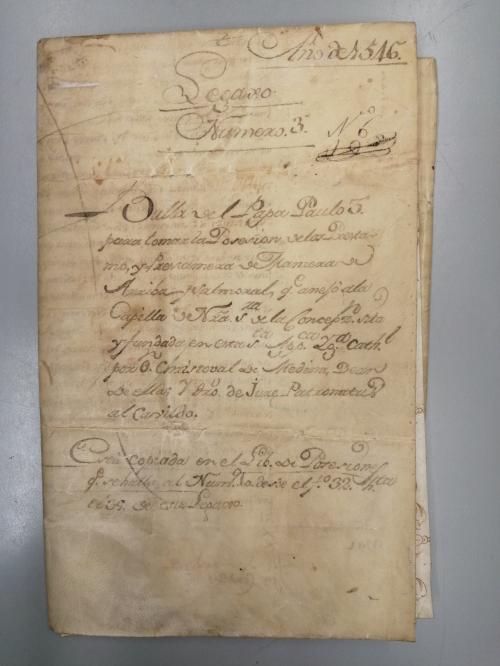 Año de 1546.
Legaxo
Numero. 3.
Nº 6
Bulla de el Papa Paulo 3.
para tomar la Posesion, de las Presta
mo, y Prestamera de Tamera de
Arriba y Valmoral, q.e anejó a la
Capilla de Nrâ. S.ra de la Concepz.n sita
y fundada en esta S.ta App.ca Ygª. Cath.l
por D. Christoval de Medina, Dean
De ella, y dio. de jure Patronatus
al Cavildo.
Está copiada en el Lib. De Posesion.s
q.e se halla al Num.º 10. desde el f.º 32. hta
el 35. de este Legaxo.